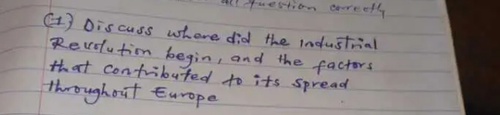 all question correctly
(1) Discuss where did the industrial
Revolution begin, and the factors
that contributed to its spread
throughout Europe